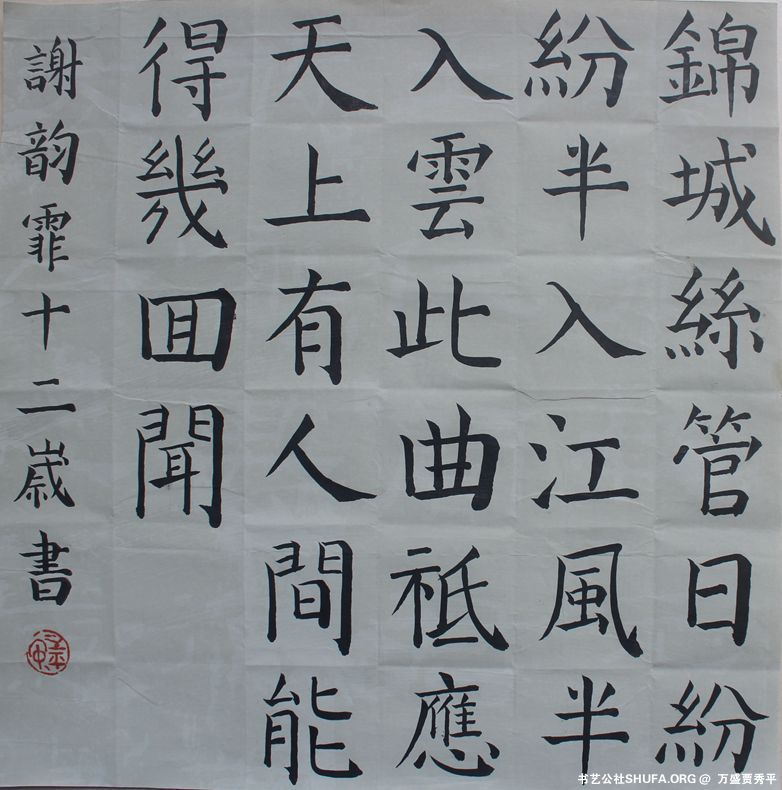 錦城絲管日紛
紛半入江風半
入雲此曲祗應
天上有人間能
得幾囬聞
謝韵霏十二嵗書
书艺公社SHUFA.ORG @ 万盛贾秀平